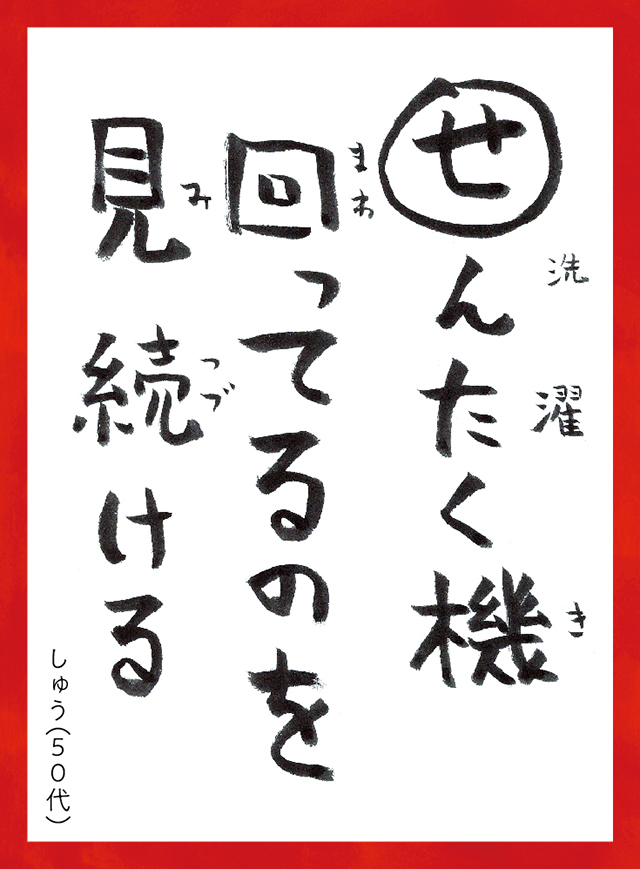 せんたく機
洗濯
き
回ってるのを
まわ
見続ける
み
つづ
しゅう(50代)